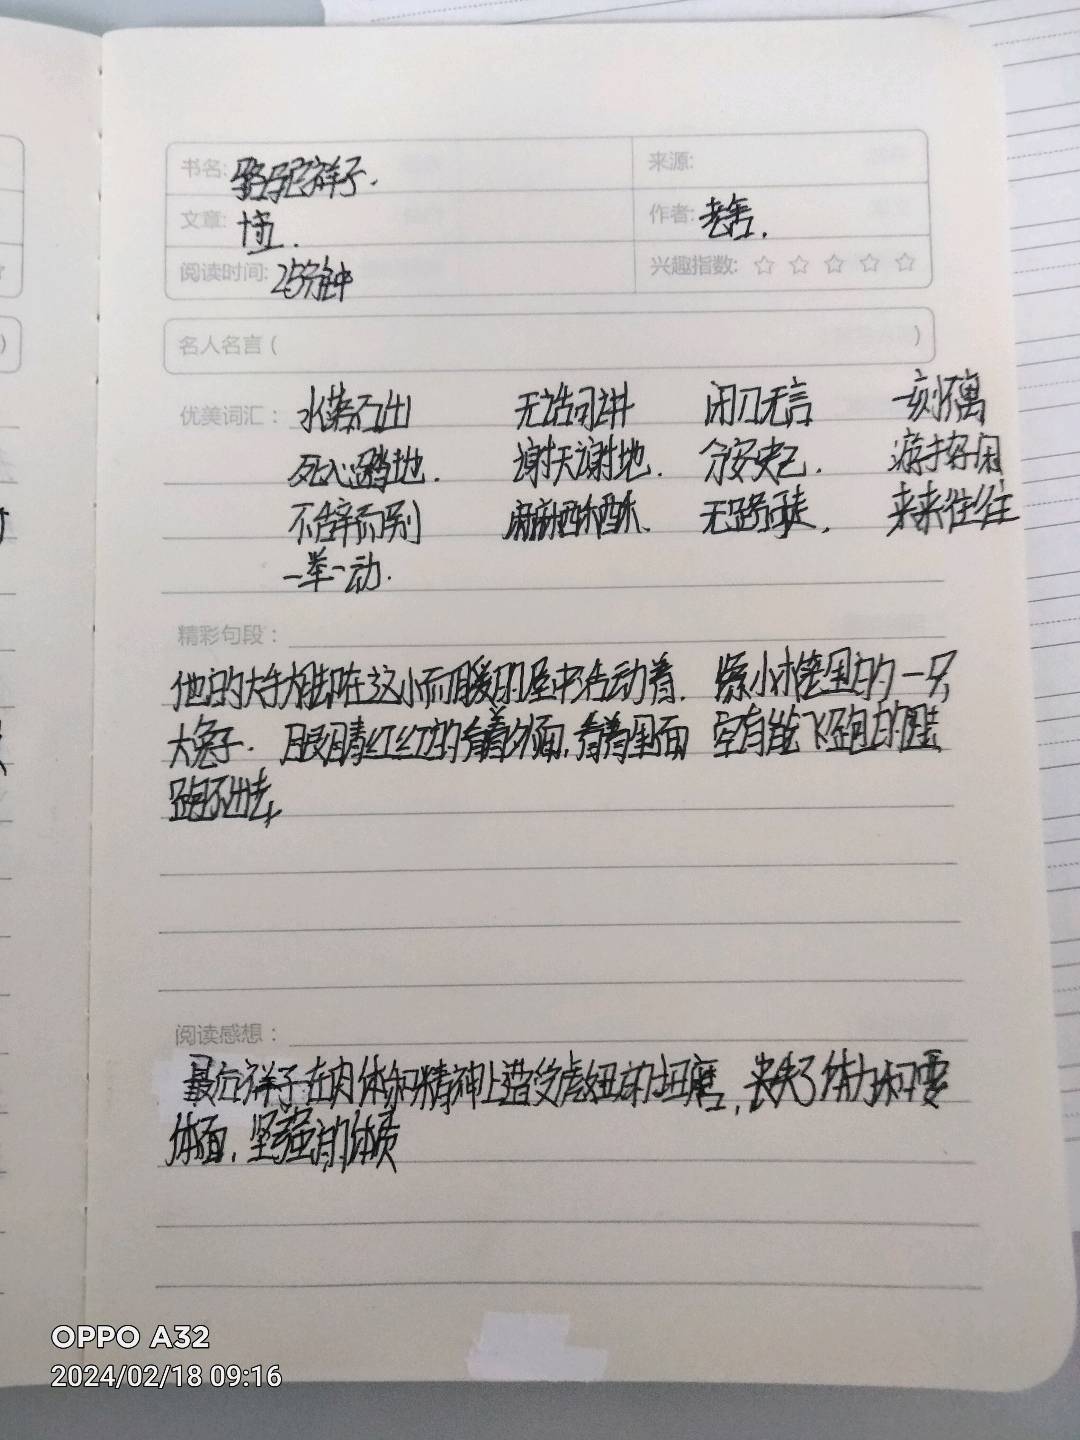 书名: 骆驼祥子.
来源:
文章: 十五.
作者: 老舍.
阅读时间: 25分钟
兴趣指数: ☆ ☆ ☆ ☆ ☆
名人名言 ( )
优美词汇: 水落石出 无话可讲 闭口无言 一刻不离
死心踏地. 谢天谢地. 分安 游手好闲
不辞而别 麻麻酥酥. 无路可走. 来来往往
一举一动.
精彩句段:
他的大手大脚在这小而暖的屋中活动着. 像小木笼里的一只
大兔子. 眼睛红红的看着外面,看着里面 空有能飞跑的腿
跑不出去,
阅读感想:
最后祥子在肉体和精神上遭受虎妞的折磨,丧失了体力和要
体面,坚强的体质
OPPO A32
2024/02/18 09:16